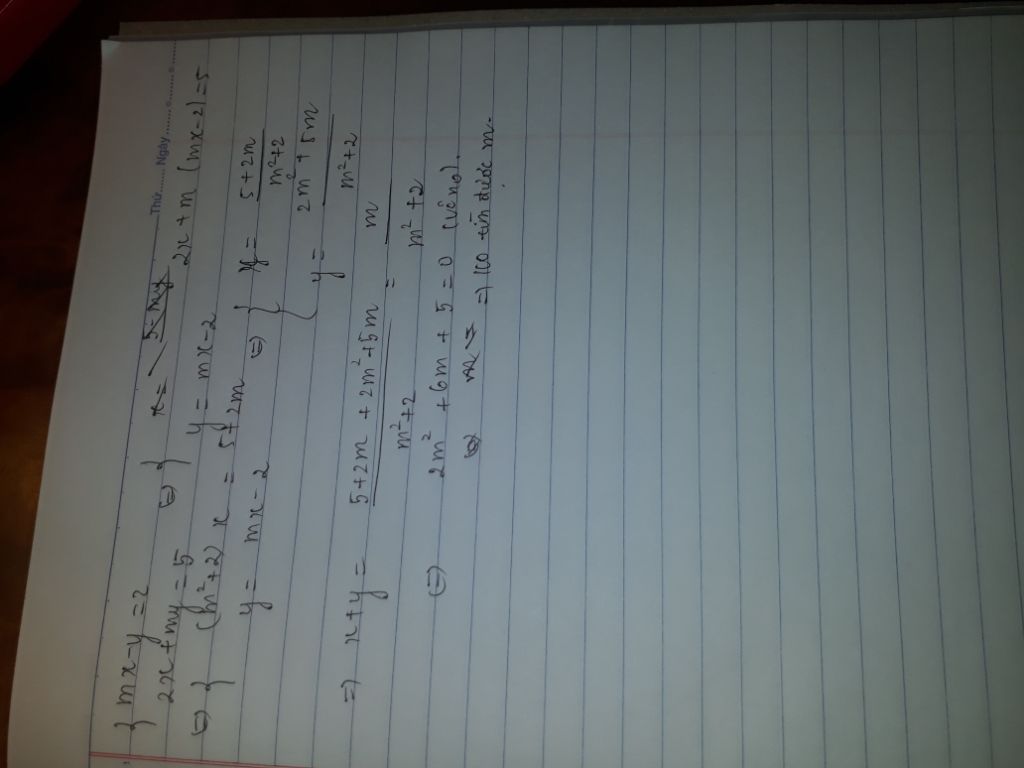 Thứ........ Ngày...................
{ mx - y = 2
2x + my = 5 ⇔ { x = 5 - my
y = mx - 2
2x + m (mx - 2) = 5
⇔ { (m² + 2) x = 5 + 2m
y = mx - 2 ⇔ { x = (5 + 2m)/(m² + 2)
y = (2m² + 5m)/(m² + 2)
⇒ x + y = (5 + 2m + 2m² + 5m)/(m² + 2) = m/(m² + 2)
⇔ 2m² + 6m + 5 = 0 (vô no).
⇒ ko tìm được m.